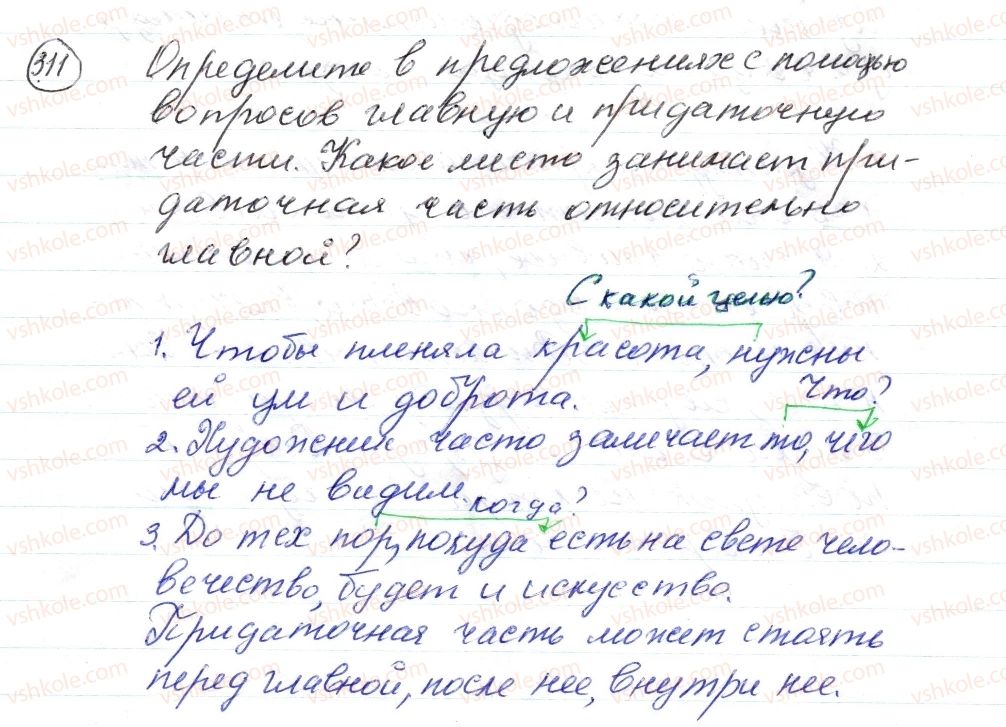 311 Определите в предложениях с помощью
вопросов главную и придаточную
части. Какое место занимает при-
даточная часть относительно
главной?
С какой целью?
1. Чтобы пленяла красота, нужны
ей ум и доброта.
Что?
2. Художник часто замечает то, чего
мы не видим.
когда?
3. До тех пор, покуда есть на свете чело-
вечество, будет и искусство.
Придаточная часть может стоять
перед главной, после нее, внутри нее.